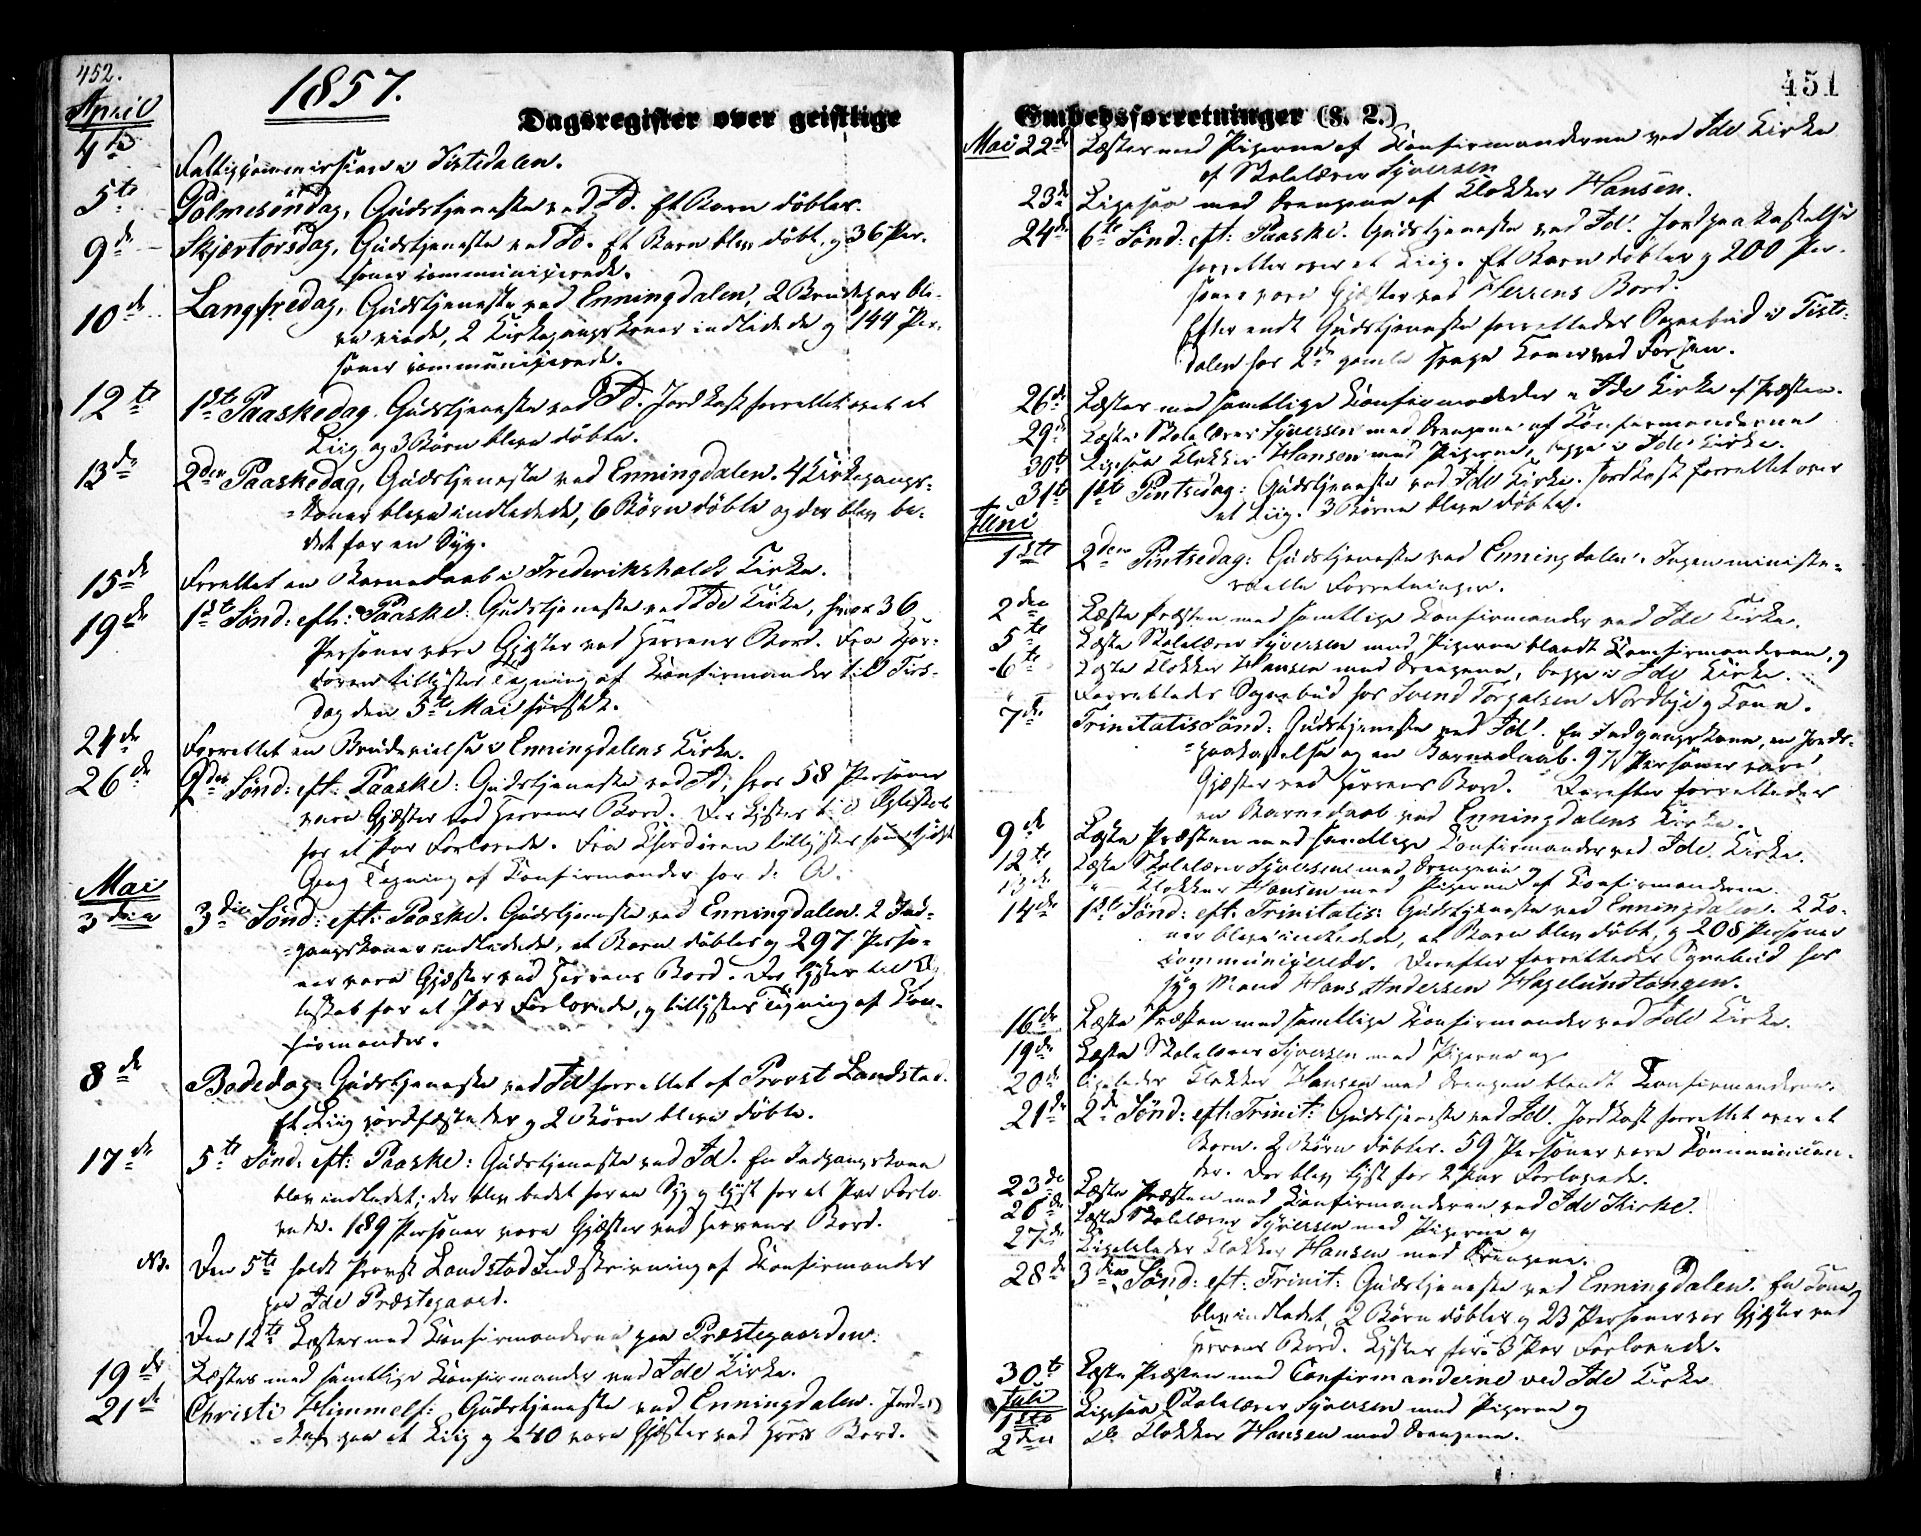 452.
1857.
Dagsregister over geistlige
April
4de Fattigcommission i Tistedalen.
5te Palmesøndag, Gudstjeneste ved Id. Et Barn døbtes.
9de Skjærtorsdag, Gudstjeneste ved Id. Et Barn blev døbt, og 36 Per-
soner communicerede.
10de Langfredag, Gudstjeneste ved Enningdalen, 2 Brudepar ble-
ve viede, 2 Kirkegangskoner indledede og 144 Per-
soner communicerede.
12te 1ste Paaskedag. Gudstjeneste ved Id. Jordkast forrettet over et
Liig og 3 Børn bleve døbte.
13de 2den Paaskedag, Gudstjeneste ved Enningdalen. 4 Kirkegangs-
koner bleve indledede, 6 Børn døbte og der blev be-
det for en Syg.
15de Forrettet en Barnedaab i Frederikshalds Kirke.
19de 1ste Sønd: eft: Paaske: Gudstjeneste ved Ide Kirke, hvor 36
Personer vare Gjester ved Herrens Bord. Fra Chor-
døren tillystes Tegning af Konfirmander til Tirs-
dag den 5te Mai førstk.
24de Forrettet en Brudevielse i Enningdalens Kirke.
26de 2den Sønd: eft: Paaske: Gudstjeneste ved Id, hvor 58 Personer
vare Gjester ved Herrens Bord. Der lystes til Ægteskab
for et Par Forlovede. Fra Chordøren tillystes
Gang Tegning af Konfirmander for d. A.
Mai
3die 3die Sønd: eft: Paaske. Gudstjeneste ved Enningdalen. 2 Ind-
gangskoner indledede, et Barn døbtes og 297 Perso-
ner vare Gjester ved Herrens Bord. Der lystes til Æg-
teskab for et Par Forlovede, og tillystes Tegning af Kon-
firmander.
8de Bededag: Gudstjeneste ved Id forrettet af Provst Landstad.
Et Liig jordfæstedes og 2 Børn bleve døbte.
17de 5te Sønd: eft: Paaske: Gudstjeneste ved Id. En Indgangskone
blev indledet; der blev bedet for en Syg og lyst for et Par Forlo-
vede. 189 Personer vare Gjester ved Herrens Bord.
NB. Den 5te holdt Provst Landstad Indskrivning af Konfirmander
paa Ide Præstegaard.
Den 12te Læstes med Konfirmanderne paa Præstegaarden.
19de Læstes med samtlige Konfirmander ved Ide Kirke.
21de Christi Himmelf: Gudstjeneste ved Enningdalen. Jord-
kast paa et Liig og 240 vare Gjester ved Herrens Bord.
451
Embedsforretninger (§. 2.)
Mai 22de Læstes med Pigerne af Konfirmanderne ved Ide Kirke
af Skolelærer Syversen
23de Ligesaa med Drengene af Klokker Hansen.
24de 6te Sønd: eft: Paaske. Gudstjeneste ved Id. Jordpaakastelse
forrettet over et Liig. Et Barn døbtes og 200 Per-
soner vare Gjester ved Herrens Bord.
Efter endt Gudstjeneste forrettedes Sognebud i Tiste-
dalen for 2de gamle svage Koner ved Fossen.
26de Læstes med samtlige Konfirmander i Ide Kirke af Præsten.
29de Læste Skolelærer Syversen med Drengene af Konfirmanderne
30te Ligesaa Klokker Hansen med Pigerne, begge i Ide Kirke.
31te 1ste Pintsedag: Gudstjeneste ved Ide Kirke. Jordkast forrettet over
et Liig. 3 Børn bleve døbte.
Juni
1ste 2den Pintsedag: Gudstjeneste ved Enningdalen. Ingen ministe-
rielle Forretninger.
2den Læste Præsten med samtlige Konfirmander ved Ide Kirke.
5te Læste Skolelærer Syversen med Pigerne blandt Konfirmanderne, og
6te Læste Klokker Hansen med Drengene, begge i Ide Kirke.
Forrettedes Sognebud hos Svend Torgalsen Nordbye og Kone.
7de Trinitatis Sønd: Gudstjeneste ved Id. En Indgangskone, en Jords-
paakastelse og en Barnedaab. 97 Personer vare
Gjester ved Herrens Bord. Derefter forrettedes
en Barnedaab ved Enningdalens Kirke.
9de Læste Præsten med samtlige Konfirmander ved Ide Kirke.
12te Læste Skolelærer Syversen med Drengene og
13de " Klokker Hansen med Pigerne af Konfirmanderne.
14de 1ste Sønd: eft: Trinitatis: Gudstjeneste ved Enningdalen. 2 Ko-
ner bleve indledede, et Barn blev døbt, og 208 Personer
communicerede. Derefter forrettedes Sognebud hos
syg Mand Hans Andersen Hagelundtangen.
16de Læste Præsten med samtlige Konfirmander ved Ide Kirke.
19de Læste Skolelærer Syversen med Pigerne og
20de ligeledes Klokker Hansen med Drengene blandt Konfirmanderne.
21de 2de Sønd: eft: Trinit: Gudstjeneste ved Id. Jordkast forrettet over et
Barn. 2 Børn døbtes. 59 Personer vare Kommunican-
der. Der blev lyst for 2 Par Forlovede.
23de Læste Præsten med Konfirmanderne ved Ide Kirke.
26de Læste Skolelærer Syversen med Pigerne og
27de Ligeledes Klokker Hansen med Drengene.
28de 3die Sønd: eft: Trinit: Gudstjeneste ved Enningdalen. En Kone
blev indledet, 2 Børn døbtes og 23 Personer var Gjester ved
Herrens Bord. Lystes for 3 Par Forlovede.
30te Læste Præsten med Confirmanderne ved Ide Kirke
Juli
1ste Ligesaa Skolelærer Syversen med Pigerne og
2den Do. Klokker Hansen med Drengene.